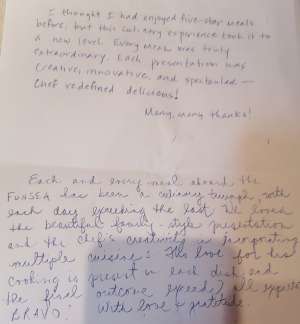 I thought I had enjoyed five-star meals
before, but this culinary experience took it to
a new level. Every meal was truly
extraordinary. Each presentation was
creative, innovative, and spectacular —
Chef redefined delicious!
Many, many thanks!
Each and every meal aboard the
has been a culinary triumph, with
each day exceeding the last. We loved
the beautiful family-style presentation
and the chef's creativity in incorporating
multiple cuisines. His love for
cooking is present in each dish, and
the final outcome exceeds all
BRAVO! With love & gratitude.